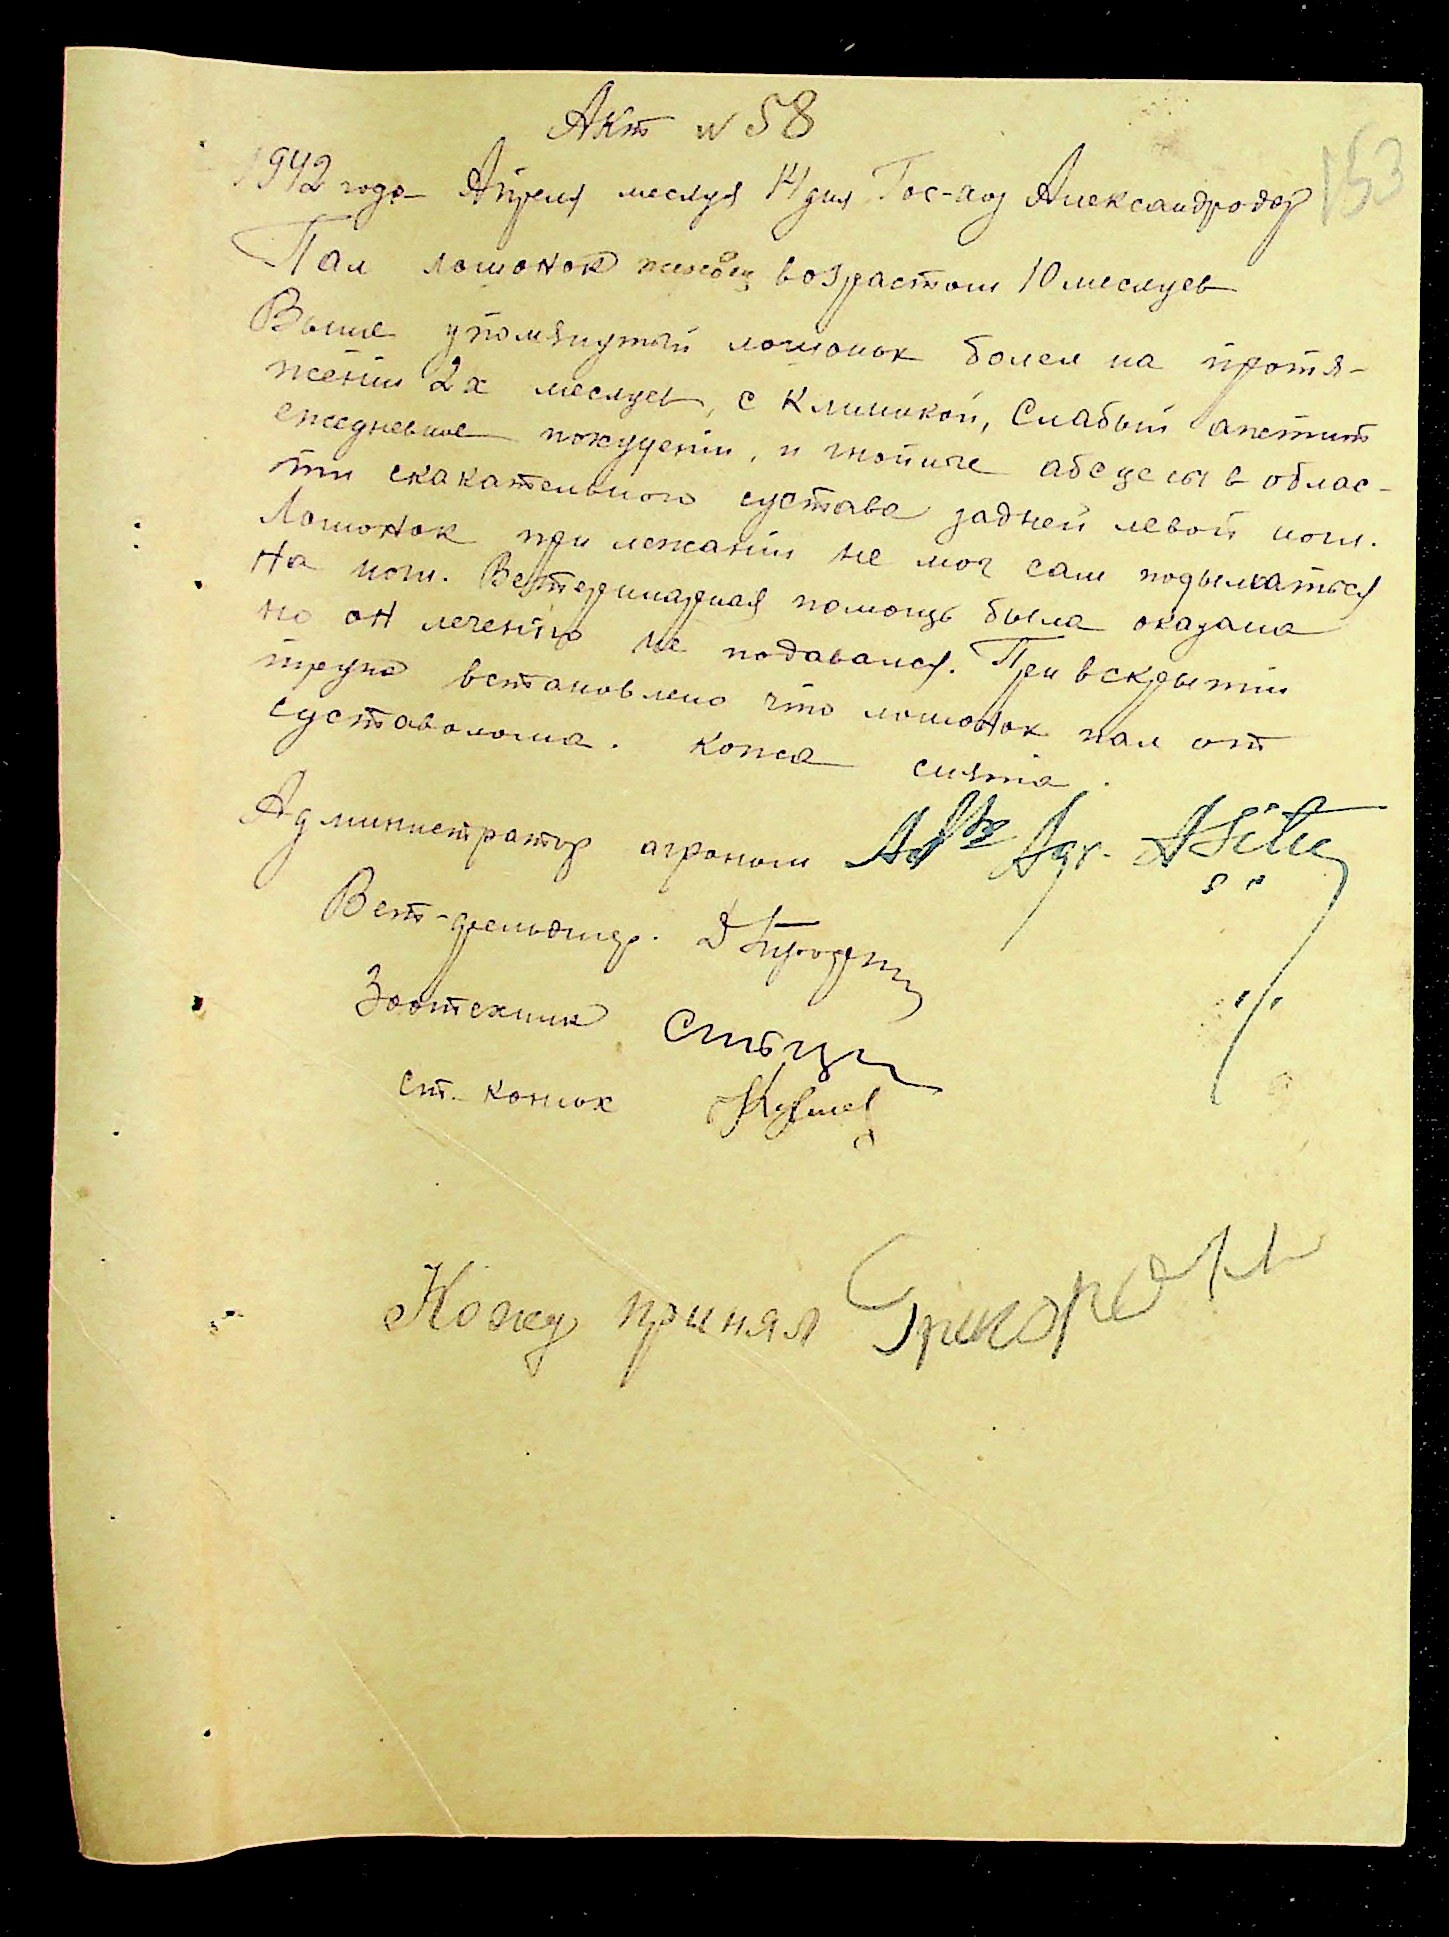 Акт № 58
153
1942 года Апреля месяця 14 дня Гос-хоз Александродар
Пал лошонок возрастом 10 месяцев
Выше упомянутый лошонок болел на протя-
жении 2х месяцев, с клиникой, Слабый апетит
ежедневное похудении, и гнойные абсцесы в облас-
ти скакательного сустава задней левой ноги.
Лошонок при лежании не мог сам подыматься
на ноги. Ветеринарная помощь была оказана
но он лечению не подавался. При вскрытии
трупа встановлено что лошонок пал от
суставолома. кожа снята.
Администратор агроном Agr.
Вет-фельдшер.
Зоотехник
ст. конюх
Кожу принял